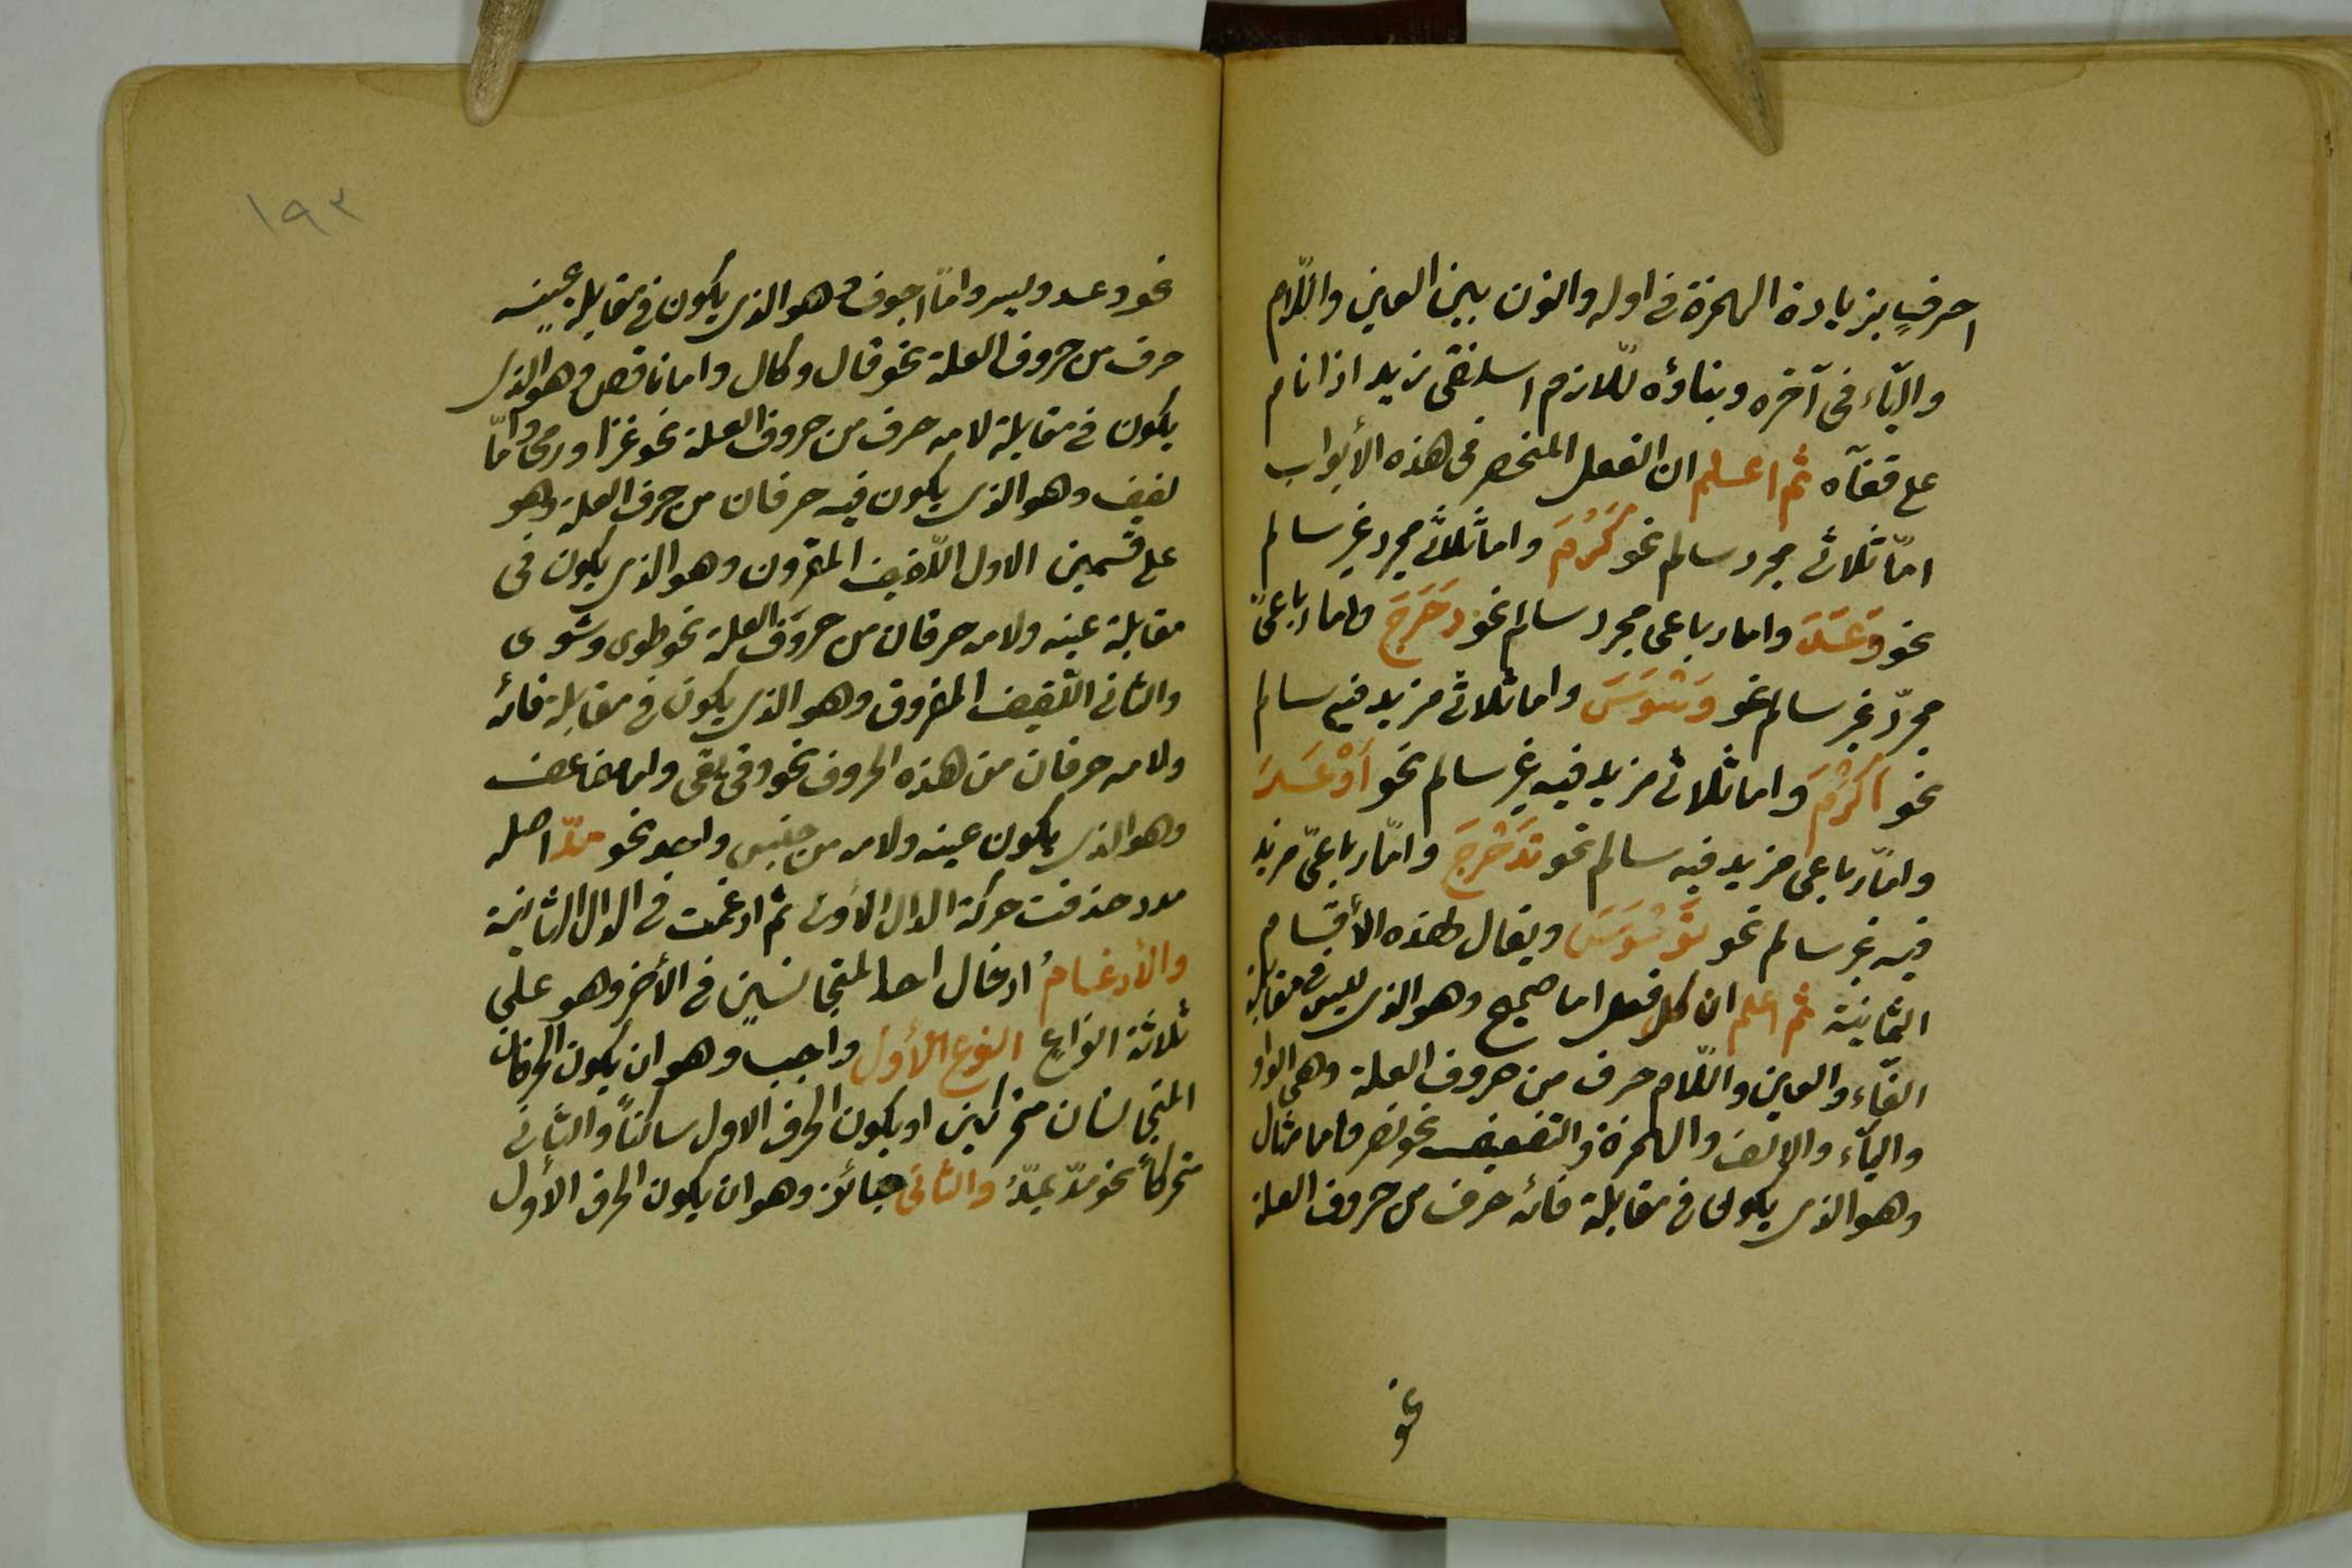 احرفٍ بزيادة الهمزة فى اوله والنون بين العين واللّام
والياّء فى آخره وبناؤه للّازم اسلنقى زيد اذا نام
على قفآه ثم اعلم ان الفعل المنحصر فى هذه الأبواب
امّا ثلاثى مجرد سالم نحو كَرُمَ واما ثلاثى مجرد غير سالم
نحو وَعَدَ واما رباعى مجرد سالم نحو دَحْرَجَ واما رباعىّ
مجردّ غير سالم نحو وَسْوَسَ واما ثلاثى مزيد فيه سالم
نحو اَكْرَمَ واما ثلاثى مزيد فيه غير سالم نحو اَوْعَدَ
وامّا رباعى مزيد فيه سالم نحو تَدَحْرَجَ وامّا رباعىّ مزيد
فيه غير سالم نحو تَوَسْوَسَ ويقال لهذه الأقسام
الثمانية ثم اعلم ان كل فعل اما صحيح وهو الذى ليس فى مقابلة
الفاّء والعين واللّام حرف من حروف العلة وهى الواو
والياّء والالف والهمزة والتضعيف نحو نصر واما مثال
وهو الذى يكون فى مقابلة فائه حرف من حروف العلة
نحو
١٩٣
نحو وعد ويسر وامّا اجوف وهو الذى يكون فى مقابلة عينه
حرف من حروف العلة نحو قال وكال واما ناقص وهو الذى
يكون فى مقابلة لامه حرف من حروف العلة نحو غزا ورمى وامّا
لفيف وهو الذى يكون فيه حرفان من حرف العلة وهو
على قسمين الاول اللّفيف المقرون وهو الذى يكون فى
مقابلة عينه ولامه حرفان من حروف العلة نحو طوى وشوى
والثانى اللّفيف المفروق وهو الذى يكون فى مقابلة فائه
ولامه حرفان من هذه الحروف نحو وقى يقى واما مضاعف
وهو الذى يكون عينه ولامه من جنس واحد نحو مدّ اصله
مدد حذفت حركة الدال الاولى ثم ادغمت فى الدال الثانية
والأدغامُ ادخال احد المتجانسين فى الأخر وهو على
ثلاثة انواع النوع الأول واجب وهو ان يكون الحرفان
المتجانسان متحركين او يكون الحرف الاول ساكناً والثانى
متحركاً نحو مدّ يمدّ والثانى جائز وهو ان يكون الحرف الأول